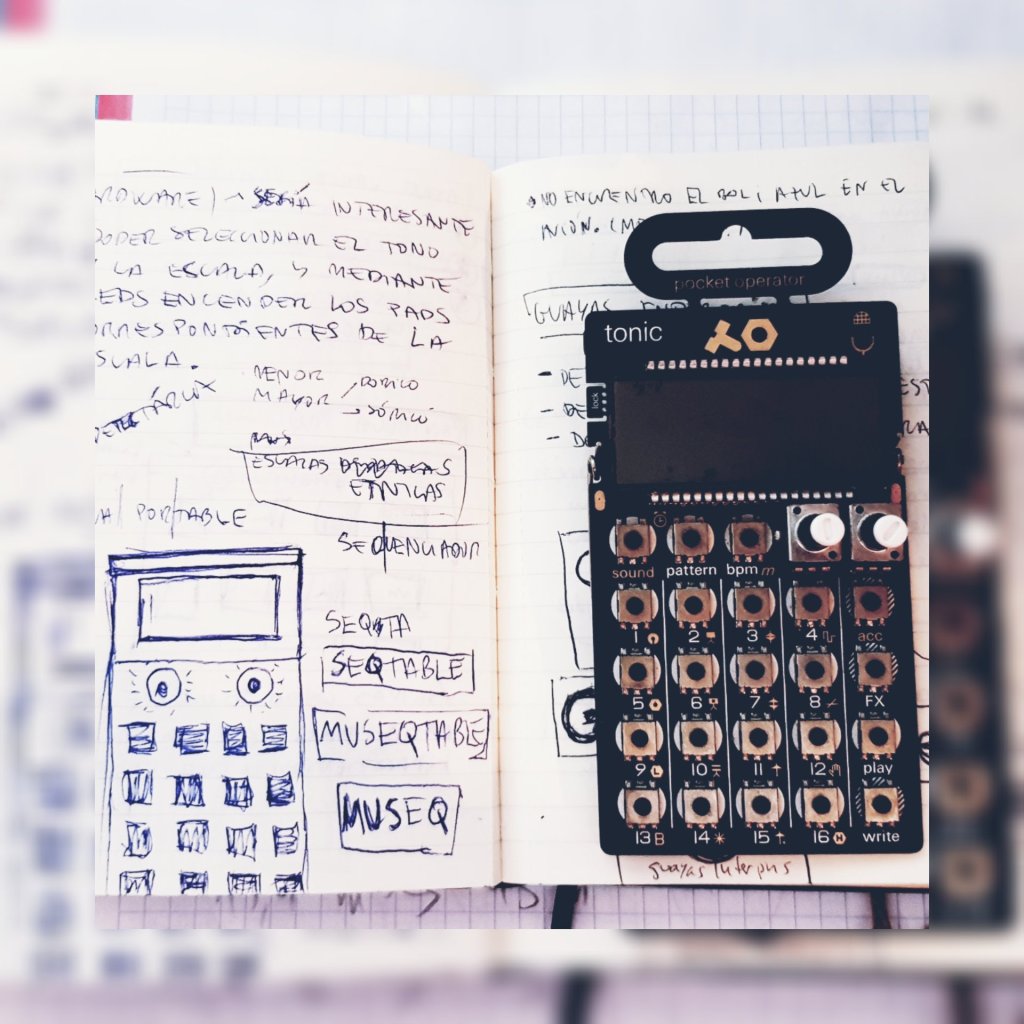 SERÍA INTERESANTE
PODER SELECCIONAR EL TONO
LA ESCALA, Y MEDIANTE
LEDS ENCENDER LOS PADS
DE LA
ESCALA.
MENOR
MAYOR
ESCALAS
ETNICAS
PORTABLE
SECUENCIADOR
SEQTA
SEQTABLE
MUSEQTABLE
MUSEQ
NO ENCUENTRO EL BOLI AZUL EN EL
GUAYAS
pocket operator
tonic
lock
sound pattern bpm m
1 2 3 4 acc
5 6 7 8 FX
9 10 11 12 play
13 14 15 16 write
guayas